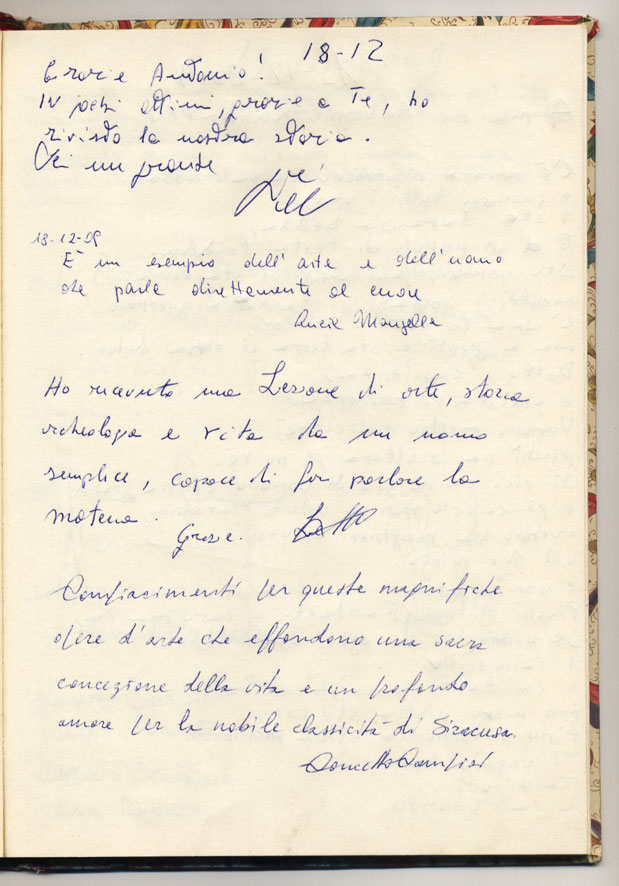 18-12
Grazie Antonio!
In pochi attimi, grazie a Te, ho
rivisto la nostra storia.
Sei un grande
18-12-05
È un esempio dell'arte e dell'uomo
che parla direttamente al cuore
Ho ricevuto una Lezione di arte, storia
archeologia e vita da un uomo
semplice, capace di far parlare la
materia.
Grazie.
Compiacimenti per queste magnifiche
opere d'arte che effondono una sacra
concezione della vita e un profondo
amore per la nobile classicità di Siracusa.
Concetto